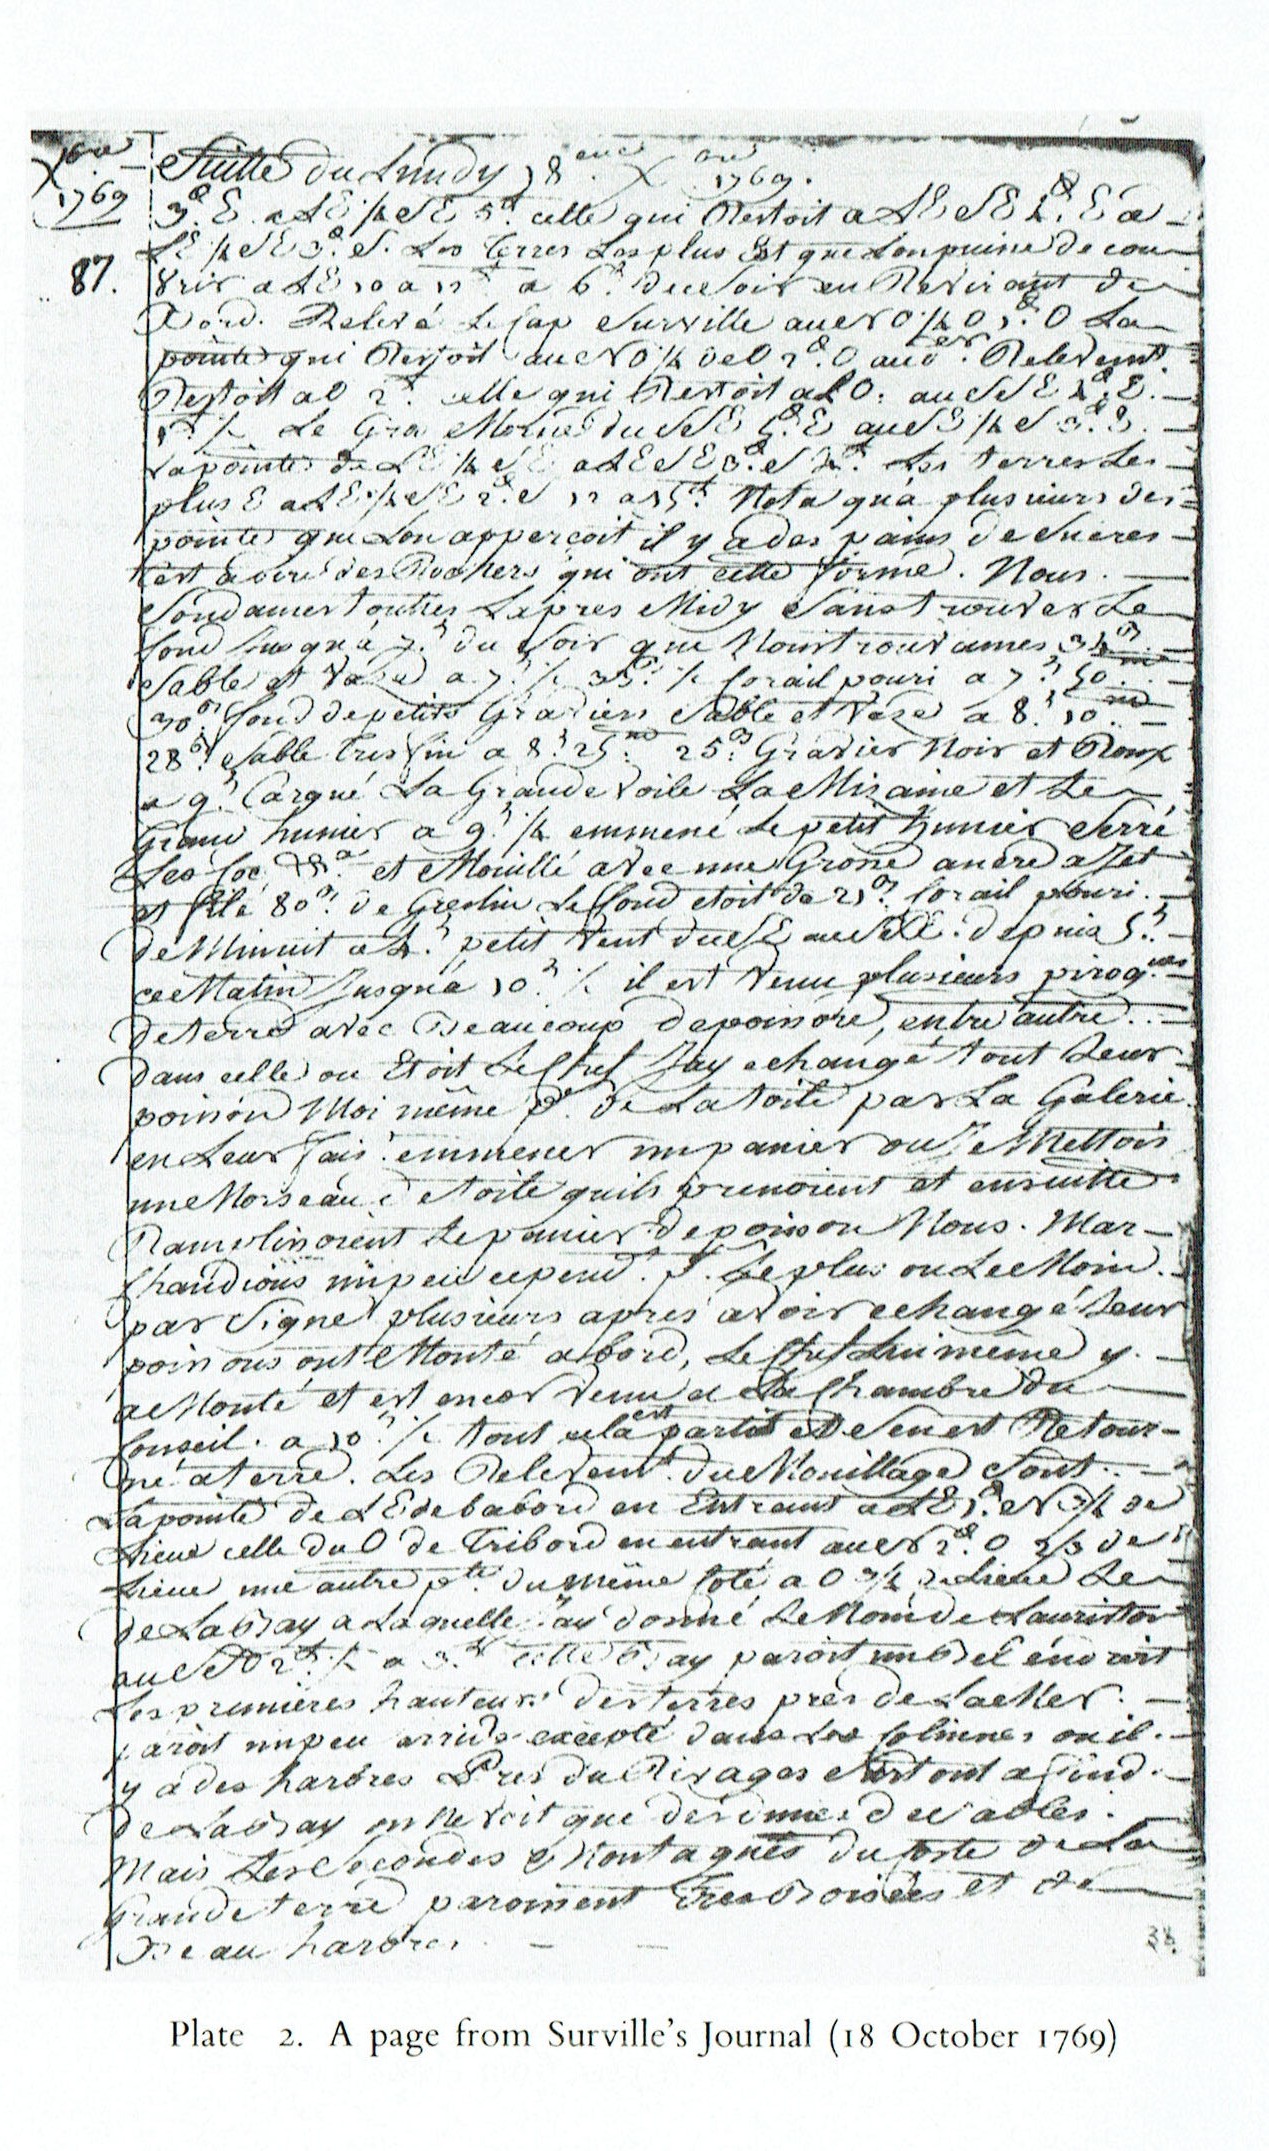 Xbre
1769
87.
Suitte du Lundy 18 eme Xbre 1769.
3d. E. a LE 1/4 SE 5d celle qui Restoit a LE SE 4d. E a
LE 1/4 SE 3d. S. Les Terres Les plus Est que Lon puine de cou
vrir a LE 10 a 12 a 6h. du Soir en Revirant de
Bord. Relevé Le Cap Surville au NO 1/4 O 1d. O La
pointe qui Restoit au NO 1/4 de O 2d. O au der. Relevemt.
Restoit a O 2d. celle qui Restoit a LO. au SSE 4d. E.
Le Gros Morne du SSE 5d. E au SE 1/4 S 3d. E.
La pointe de LE 1/4 SE a LE SE 3d. S Les terres Les
plus E a LE 1/4 SE 2d. S 12 a 15 Nota qu'a plusieurs des
pointes que Lon apperçoit il y a des pains de Sucres
c'est a dire des Rochers qui ont cette forme. Nous.
Sondames toutes L'apres Midy Sans trouver Le
fond Jusqu'a 7h. du Soir que Nous trouvames 34
Sable et Vaze a 7h. 1/4 35 1/2 Corail pouri a 7h. 50
30 fond de petits Graviers Sable et Vaze a 8h. 10
28 Sable tres fin a 8h 25 25 Gravier Noir et Roux
a 9h Cargué La Grande Voile La Mizaine et Le
Grand hunier a 9h. 1/4 emmené Le petit hunier Serré
Les foc et Mouillé avec une Grosse ancre a Jet
et filé 80 de Grelin Le fond etoit de 21 Corail pouri.
de Minuit a 4h petit Vent du SE au SSE. depuis 5h.
ce Matin Jusqu'a 10h 1/2 il est Venu plusieurs pirogues
de terre avec Beaucoup de poisons, entre autre..
dans celle ou Etoit Le Chef Jay echangé tout Leur
poison Moi même pr. de La toile par La Galerie
en Leur fais. emmener un panier ou Je Mettois
une Morseau de toile quils prenoient et ensuitte
Ramplissoient Le panier de poison Nous. Mar-
chandions un peu cepend. pr. Le plus ou Le Moin.
par Signe plusieurs apres avoir echangé Leur
poisons ont Monté a bord, Le Chef Lui même y.
a Monté et est encor Venu a La Chambre du
Conseil. a 10h 1/2 tout cela est partit et Sen est Retour-
né a terre. Les Relevemt. du Mouillage Sont..
La pointe de LE de babord en Entrant a LE 1d. N 3/4 de
Lieue celle du O de Tribord en entrant au N 2d. O 2/3 de
Lieue une autre pte. du même Coté a O 3/4 de Lieue Le
de La Bay a Laquelle J'ay donné Le Nom de Lauriston
au SSO 2d. 1/2 a 3 cette Bay paroit un Bel endroit
Les premieres hauteurs des terres pres de La Mer.
paroit un peu arride excepté dans Les Colinnes ou il.
y a des harbres Pres du Rivages Surtout a fond.
de La Bay on Ne Voit que des dunnes de Sables.
Mais Les Secondes Montagnes du Coste de La
Grande terre paroissent tres Boisées et de
Beau harbres.
38.
Plate 2. A page from Surville's Journal (18 October 1769)